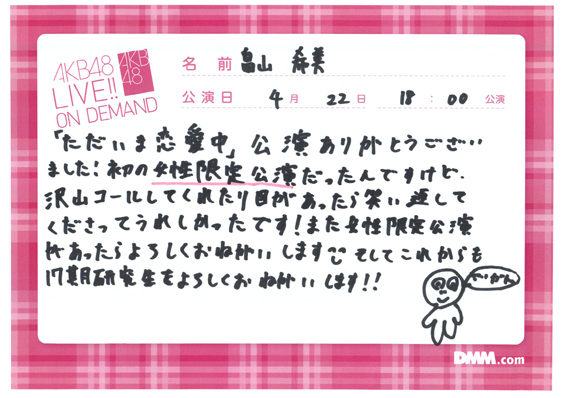 AKB48
LIVE!!
ON DEMAND
AKB
48
名前 畠山 希美
公演日 4月 22日 18:00 公演
「ただいま恋愛中」公演ありがとうござい
ました！初の女性限定公演だったんですけど、
沢山コールしてくれたり目があったら笑い返して
くださってうれしかったです！また女性限定公演
があったらよろしくおねがいします そしてこれからも
17期研究生をよろしくおねがいします!!
DMM.com